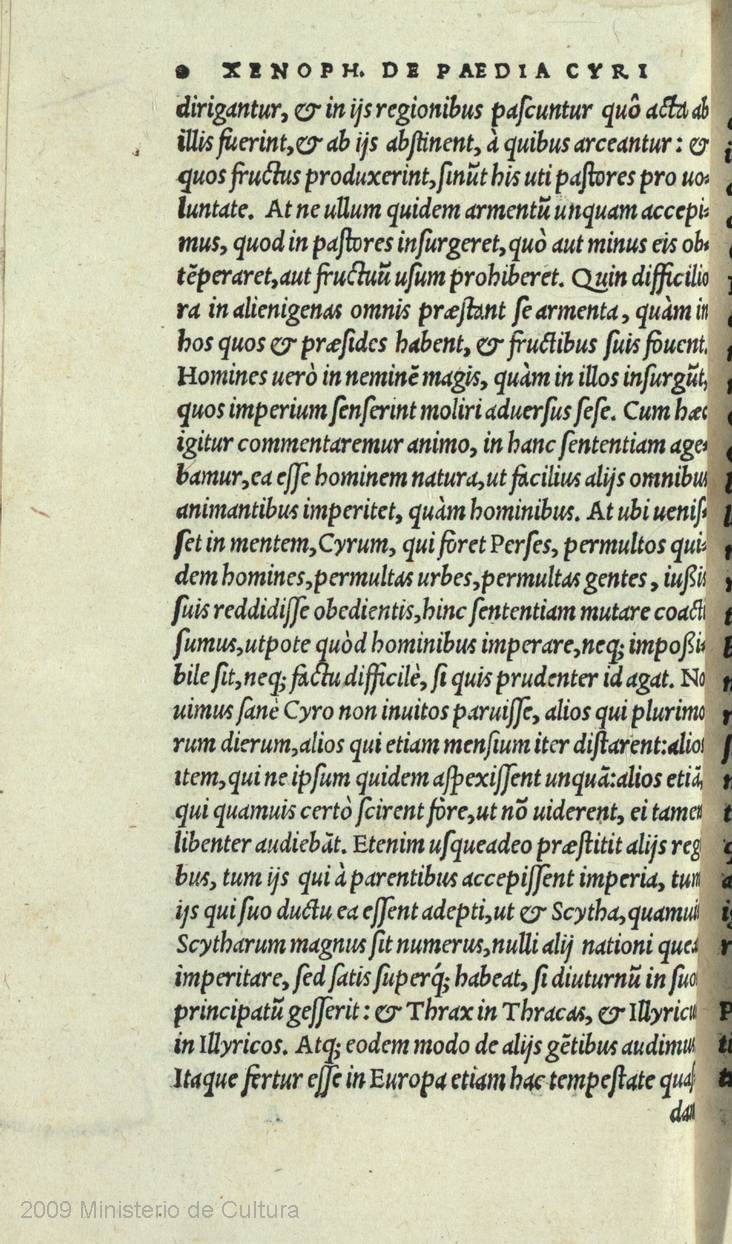 XENOPH. DE PAEDIA CYRI
dirigantur, & in ijs regionibus paſcuntur quô acta ab
illis fuerint, & ab ijs abſtinent, à quibus arceantur: &
quos fructus produxerint, ſinũt his uti paſtores pro uo⸗
luntate. At ne ullum quidem armentũ unquam accepi⸗
mus, quod in paſtores inſurgeret, quò aut minus eis ob⸗
tẽperaret, aut fructuũ uſum prohiberet. Quin difficilio
ra in alienigenas omnis præſtant ſe armenta, quàm in
hos quos & præſides habent, & fructibus ſuis fouent.
Homines uerò in neminẽ magis, quàm in illos inſurgũt,
quos imperium ſenſerint moliri aduerſus ſeſe. Cum hæc
igitur commentaremur animo, in hanc ſententiam age⸗
bamur, ea eſſe hominem natura, ut facilius alijs omnibus
animantibus imperitet, quàm hominibus. At ubi ueniſ⸗
ſet in mentem, Cyrum, qui foret Perſes, permultos qui⸗
dem homines, permultas urbes, permultas gentes, iußis
ſuis reddidiſſe obedientis, hinc ſententiam mutare coacti
ſumus, utpote quòd hominibus imperare, neq; impoßi⸗
bile ſit, neq; factu difficilè, ſi quis prudenter id agat. No
uimus ſanè Cyro non inuitos paruiſſe, alios qui plurimo
rum dierum, alios qui etiam menſium iter diſtarent: alios
item, qui ne ipſum quidem aſpexiſſent unquã: alios etiã,
qui quamuis certò ſcirent fore, ut nõ uiderent, ei tamen
libenter audiebãt. Etenim uſqueadeo præſtitit alijs reg
bus, tum ijs qui à parentibus accepiſſent imperia, tum
ijs qui ſuo ductu ea eſſent adepti, ut & Scytha, quamuis
Scytharum magnus ſit numerus, nulli alij nationi quea
imperitare, ſed ſatis ſuperq́; habeat, ſi diuturnũ in ſuo
principatũ geſſerit: & Thrax in Thracas, & Illyricu
in Illyricos. Atq; eodem modo de alijs gẽtibus audimus
Itaque fertur eſſe in Europa etiam hac tempeſtate quaſ
dam
2009 Ministerio de Cultura